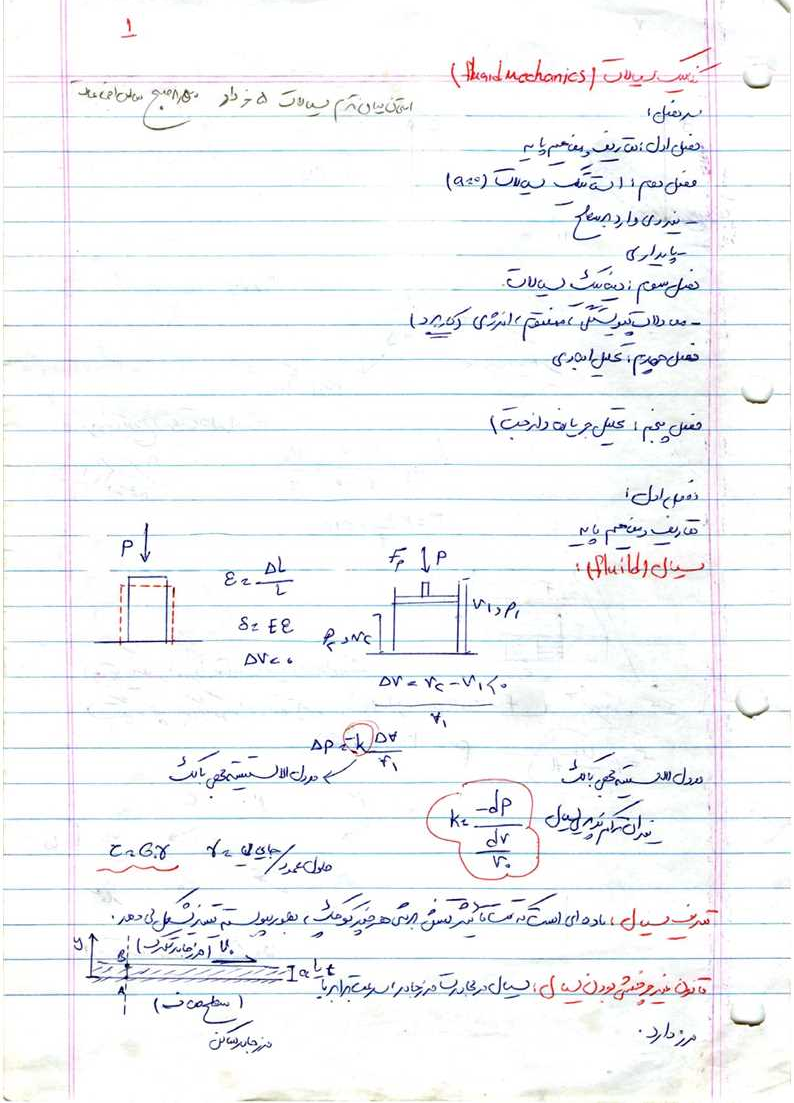 ۱
مکانیک سیالات (fluid Mechanics)
امتحان پایان ترم سیالات ۵ خرداد صبح
سرفصل:
فصل اول: تعاریف و مفاهیم پایه
فصل دوم: استاتیک سیالات (a=0)
- نیروی وارد بر سطح
- پایداری
فصل سوم: دینامیک سیالات
- معادلات پیوستگی، مومنتوم، انرژی (کاربرد)
فصل چهارم: تحلیل ابعادی
فصل پنجم: تحلیل جریان (لزجت)
فصل اول:
تعاریف و مفاهیم پایه
سیال (fluid):
P
ε = ΔL/L
δ = Eε
ΔV = ۰
Fp P
V1, P1
P2, V2
ΔV = V2 - V1 < ۰
V1
ΔP = -k ΔV/V1
مدول الاستیسیته حجمی بالک
مدول الاستیسیته حجمی بالک
میزان تراکم پذیری سیال
k = -dP / (dV/V۰)
τ = G.γ
γ = جابجایی/طول عمود
تعریف سیال: ماده ای است که تحت تاثیر تنش برشی هر چند کوچک، بطور پیوسته تغییر شکل می دهد.
y B (مرز جامد متحرک) V۰
a یا t
A
قانون عدم لغزش بودن سیال: سیال در مجاورت مرز جامد سرعت برابر با
(سطح صاف)
مرز جامد ساکن
مرز دارد.